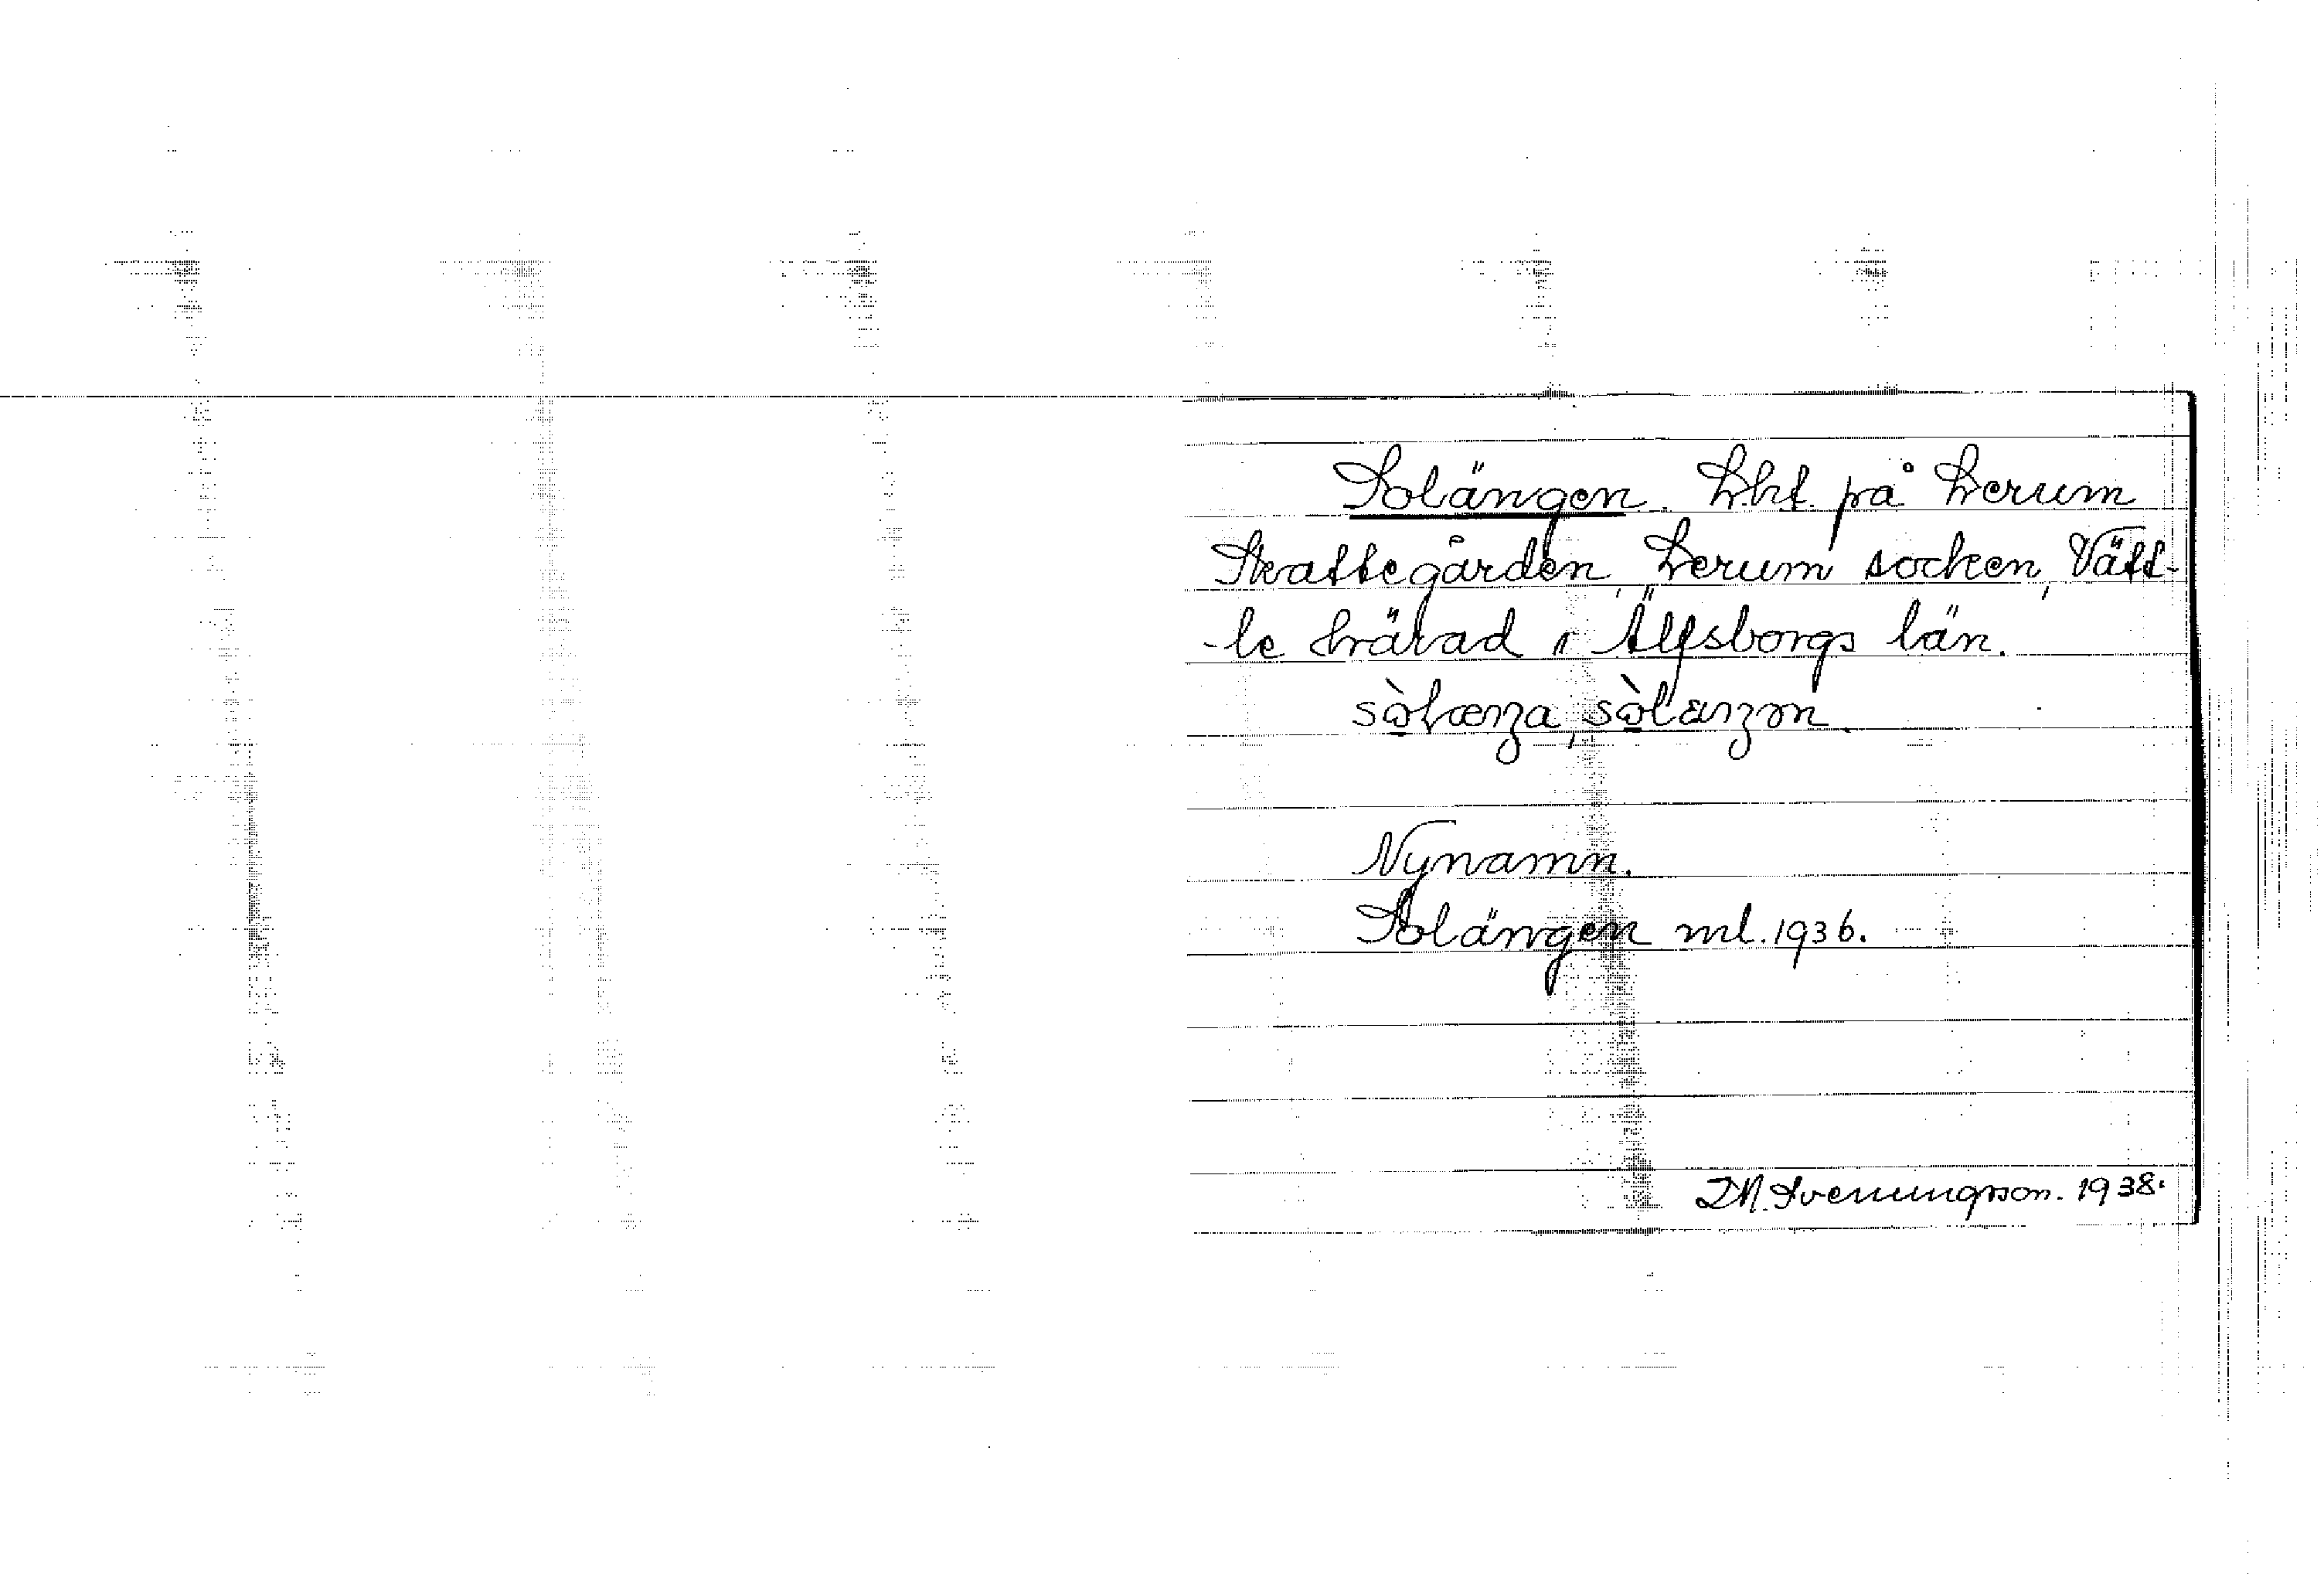 Solängen. Lht. på Lerum
Skattegården, Lerum socken, Vätt-
-le härad i Älfsborgs län.
Nynamn.
Solängen ml. 1936.
D.N. Svenungsson. 1938.